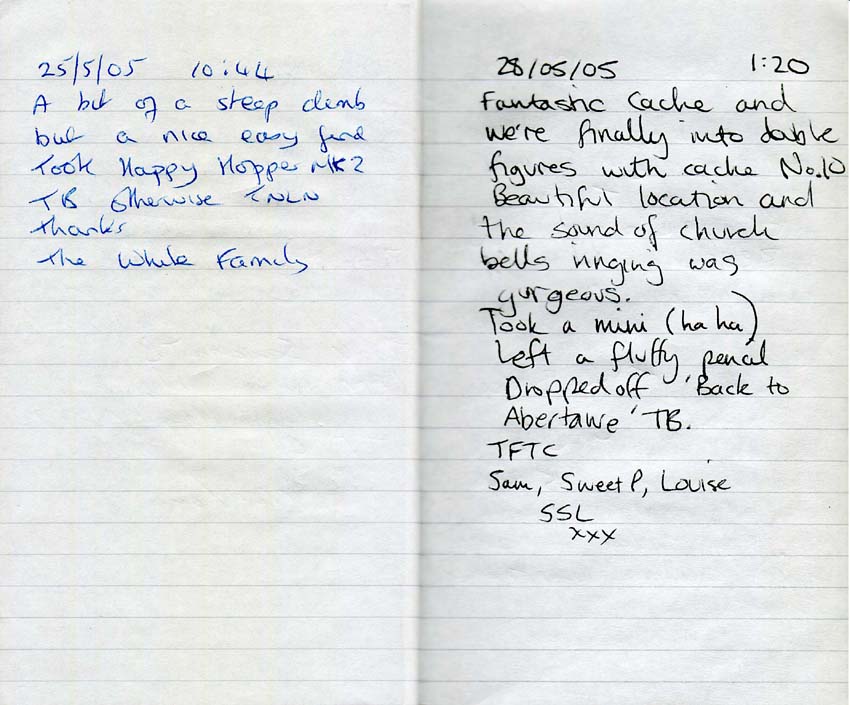 25/5/05 10:44
A bit of a steep climb
but a nice easy find
Took Happy Hopper MK2
TB otherwise TNLN
thanks
The White Family
28/05/05 1:20
Fantastic Cache and
we're finally into double
figures with cache No.10
Beautiful location and
the sound of church
bells ringing was
gorgeous.
Took a mini (ha ha)
Left a fluffy pencil
Dropped off 'Back to
Abertawe' TB.
TFTC
Sam, Sweet P, Louise
SSL
xxx